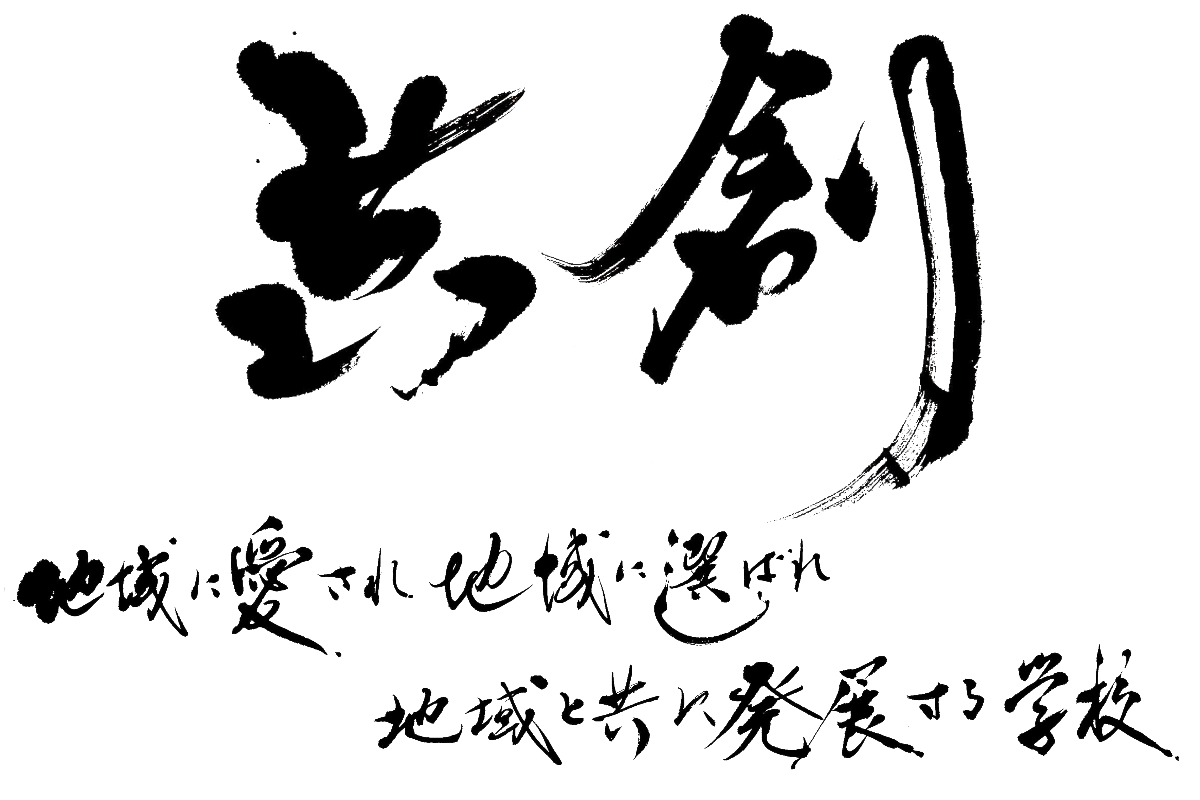 共創
地域に愛され地域に選ばれ
地域と共に発展する学校